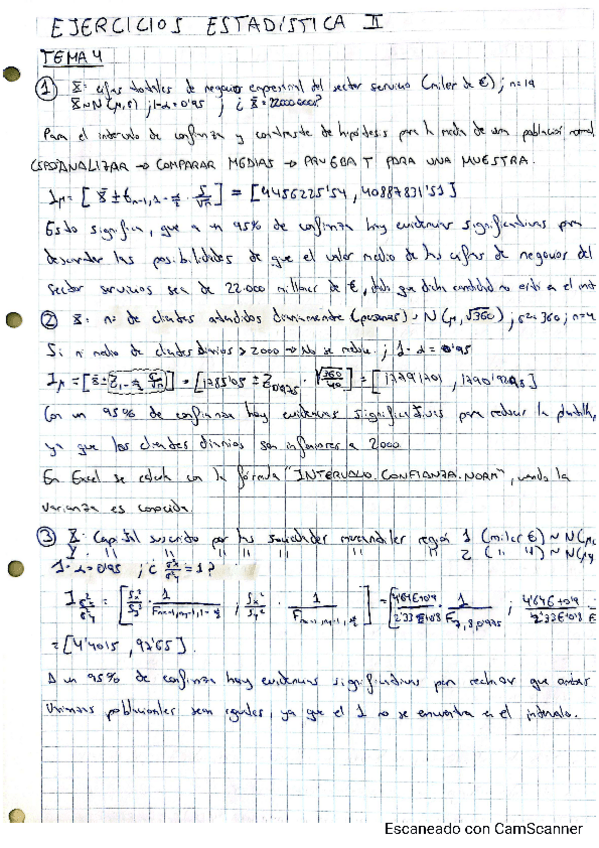 EJERCICIOS ESTADÍSTICA II
TEMA 4
① X: cifras totales de negocio empresarial del sector servicios (miles de €); n=19
X~N(μ,σ) ; 1-α=0'95 ; ¿ X = 22000000?
Para el intervalo de confianza y contraste de hipótesis para la media de una población normal
(SPSS) ANALIZAR → COMPARAR MEDIAS → PRUEBA T PARA UNA MUESTRA.
Iμ = [ X ± t n-1, 1-α/2 · S/√n ] = [4456225'54, 40887831'51]
Esto significa, que a un 95% de confianza hay evidencias significativas para
descartar las posibilidades de que el valor medio de las cifras de negocios del
sector servicios sea de 22.000 millones de €, dado que dicha cantidad no está en el
② X: nº de clientes atendidos diariamente (personas) ~ N(μ, √360) ; σ²=360 ; n=4
Si nº medio de clientes diarios > 2000 → No se reduce ; 1-α = 0'95
Iμ = [ X ± Z 1-α/2 σ/√n ] = [1785'05 ± Z 0'975 · √360/40 ] = [1779'1701, 1790'9295]
Con un 95% de confianza hay evidencias significativas para reducir la
ya que los clientes diarios son inferiores a 2000
En Excel se calcula con la fórmula "INTERVALO.CONFIANZA.NORM", cuando la
varianza es conocida.
③ X: Capital suscrito por las sociedades mercantiles región 1 (miles €) ~ N(μ
Y: '' '' '' '' '' '' '' 2 ('' '') ~ N(μy
1-α=0'95 ; ¿ σ²x/σ²y = 1?
I σ²x/σ²y = [ Sx²/Sy² · 1/F ; Sx²/Sy² · 1/F ] = [ 4'64E+09/2'33E+08 · 1/F 7,8,0'975 ; 4'64E+09/2'33E+08
= [4'4015, 97'65].
A un 95% de confianza hay evidencias significativas para rechazar que ambas
varianzas poblacionales sean iguales, ya que el 1 no se encuentra en el intervalo.
Escaneado con CamScanner